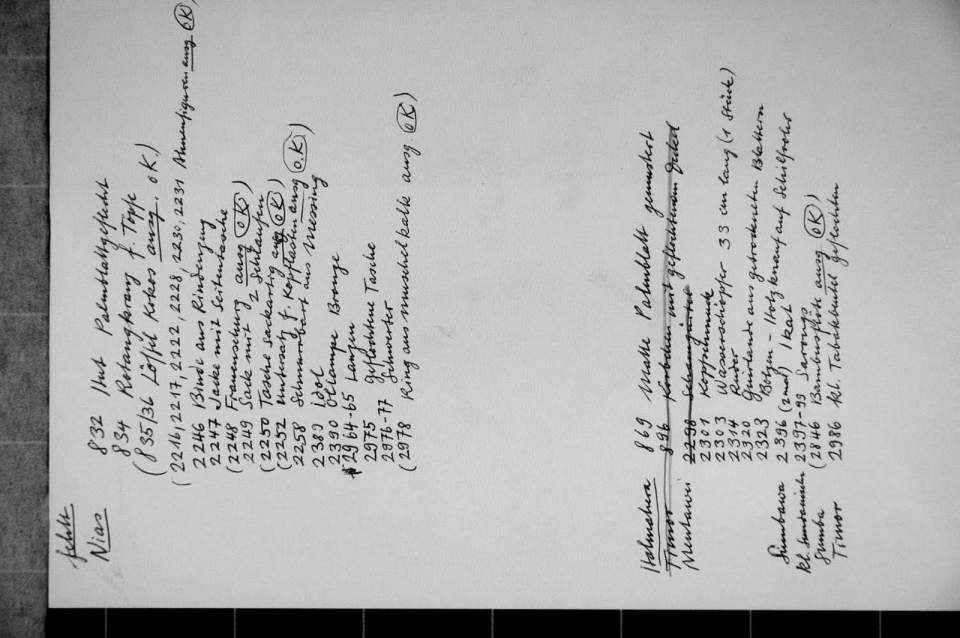 fehlt
Nias
832 Hut Palmblattgeflecht
834 Rotangkranz f. Töpfe
(835/36 Löffel Kokos ausg. OK.)
(2216, 2217, 2222, 2228, 2230, 2231 Ahnenfiguren ausg OK)
2246 Binde aus Rindenzeug
2247 Jacke mit Seitentasche
(2248 Frauenschurz ausg OK)
2249 Sack mit 2 Schlaufen
(2250 Tasche sackartig ausg OK)
(2252 Untersatz f. ausg O.K)
2258 Schnurrbart aus Messing
2389 Idol
2390 Öllampe Bronze
2964-65 Lanzen
2975 Geflochtene Tasche
2976-77 Schwerter
(2978 Ring aus Muschelkalk ausg OK)
Halmahera 869 Matte Palmblatt gemustert
Timor 896 Körbchen mit geflochtenem Deckel
Mentawei 2298
2301 Kopfschmuck
2303 Wasserschöpfer 33 cm lang (1 Stück)
2314 Ruder
2320 Guirlande aus getrockneten Blättern
2323 Bogen - Holzknauf auf Schilfrohr
Sumbawa 2396 (2mal) Ikat
kl. Sundainseln 2397-99 Sarongs
Sumba (2846 Bambusflöte ausg OK)
Timor 2986 kl. Tabakbeutel geflochten